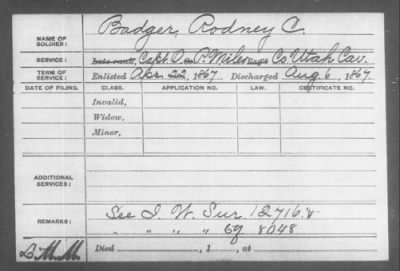 Badger, Rodney C.
NAME OF SOLDIER:
SERVICE: Late rank, Capt O. P. Miles Co Utah Cav.
TERM OF SERVICE: Enlisted Apr. 22, 1867 Discharged Aug 6, 1867.
DATE OF FILING. CLASS. APPLICATION NO. LAW. CERTIFICATE NO.
Invalid,
Widow,
Minor,
ADDITIONAL SERVICES:
REMARKS: See I. W. Sur. 12716.
" " " " 8048
L.M.M. Died , 1 , at